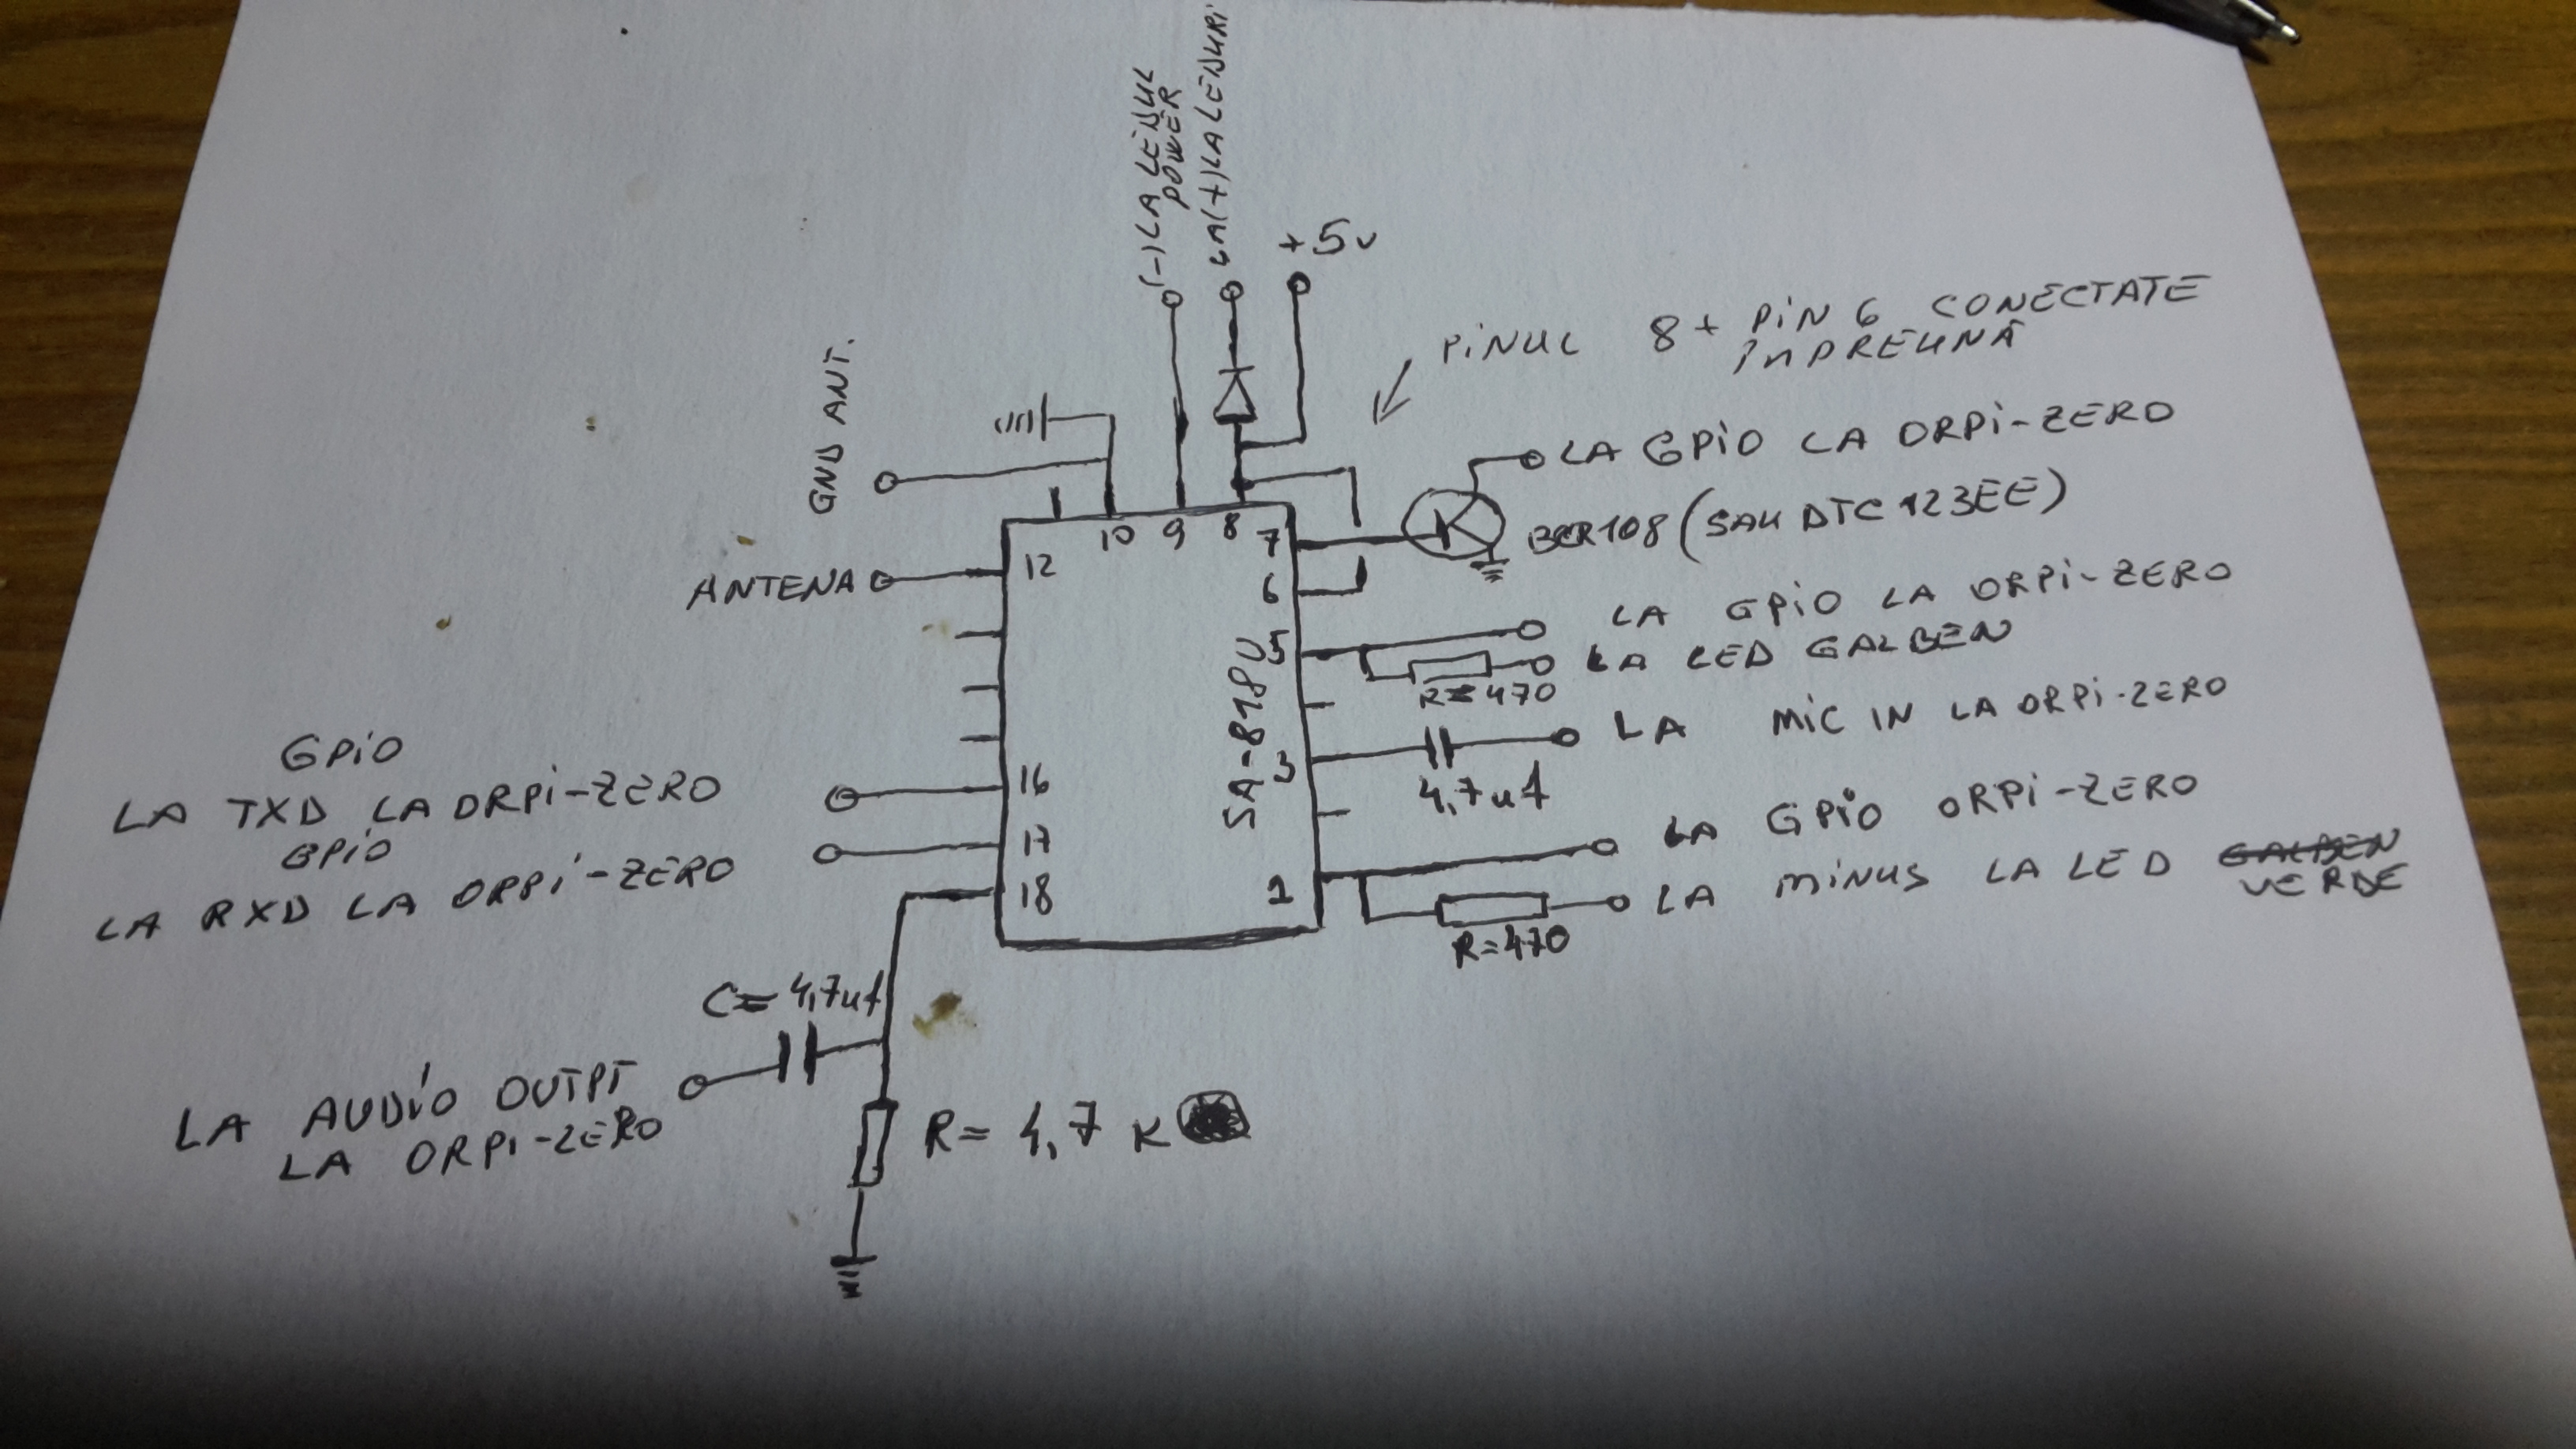 (-) LA LEDUL
POWER
LA (+) LA LEDURI
+5v
GND ANT.
PiNUL 8 + PiN 6 CONECTATE
ÎMPREUNĂ
LA GPiO LA ORPi-ZERO
BCR108 (SAU DTC 123EE)
ANTENA
12
10
9
8
7
6
5
3
1
16
17
18
SA-818U
LA GPiO LA ORPi-ZERO
LA LED GALBEN
R=470
LA MiC IN LA ORPi-ZERO
4,7uf
LA GPiO ORPi-ZERO
LA MiNUS LA LED GALBEN
VERDE
R=470
GPiO
LA TXD LA ORPi-ZERO
GPiO
LA RXD LA ORPi-ZERO
C= 4,7uf
LA AUDiO OUTPT
LA ORPi-ZERO
R= 4,7 K